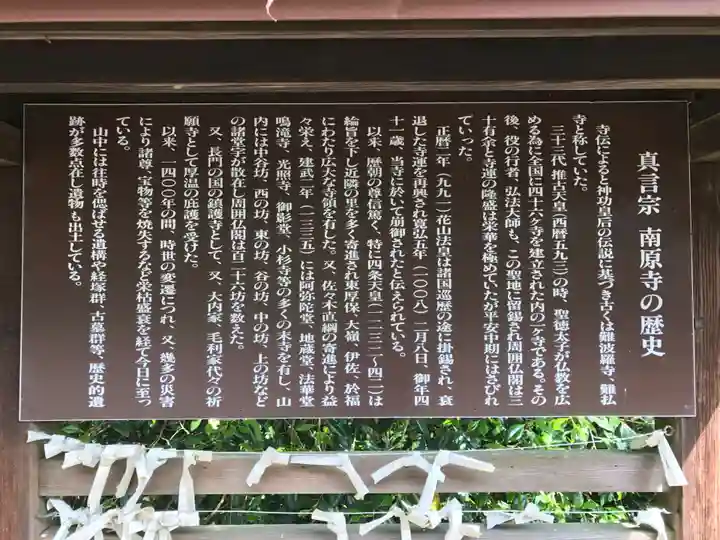 真言宗 南原寺の歴史
寺伝によると神功皇后の伝説に基づき古くは難波羅寺、難私
寺と称していた。
三十三代 推古天皇(西暦五九三)の時、聖徳太子が仏教を広
める為に全国に四十六ヶ寺を建立された内の一ケ寺である。その
後、役の行者、弘法大師も、この聖地に留錫され周囲仏閣は三
十有余と寺運の隆盛は栄華を極めていたが平安中期にはさびれ
ていった。
正暦二年(九九一)花山法皇は諸国巡歴の途に掛錫され、衰
退した寺運を再興され寛弘五年(一〇〇八)二月八日、御年四
十一歳、当寺に於いて崩御されたと伝えられている。
以来、歴朝の尊信篤く、特に四条天皇(一二三二〜四二)は
綸旨を下し近隣の里を多く寄進され東厚保、大嶺、伊佐、於福
にわたり広大な寺領を有した。又、佐々木直綱の寄進により益
々栄え、建武二年(一三三五)には阿弥陀堂、地蔵堂、法華堂
鳴滝寺、光照寺、御影堂、小杉寺等の多くの末寺を有し、山
内には中谷坊、西の坊、東の坊、谷の坊、中の坊、上の坊など
の諸堂宇が散在し周囲仏閣は百二十六坊を数えた。
又、長門の国の鎮護寺として、又、大内家、毛利家代々の祈
願寺として厚温の庇護を受けた。
以来、一四〇〇年の間、時世の変遷につれ、又、幾多の災害
により諸尊、宝物等を焼失するなど栄枯盛衰を経て今日に至っ
ている。
山中には往時を偲ばせる遺構や経塚群、古墓群等、歴史的遺
跡が多数点在し遺物も出土している。